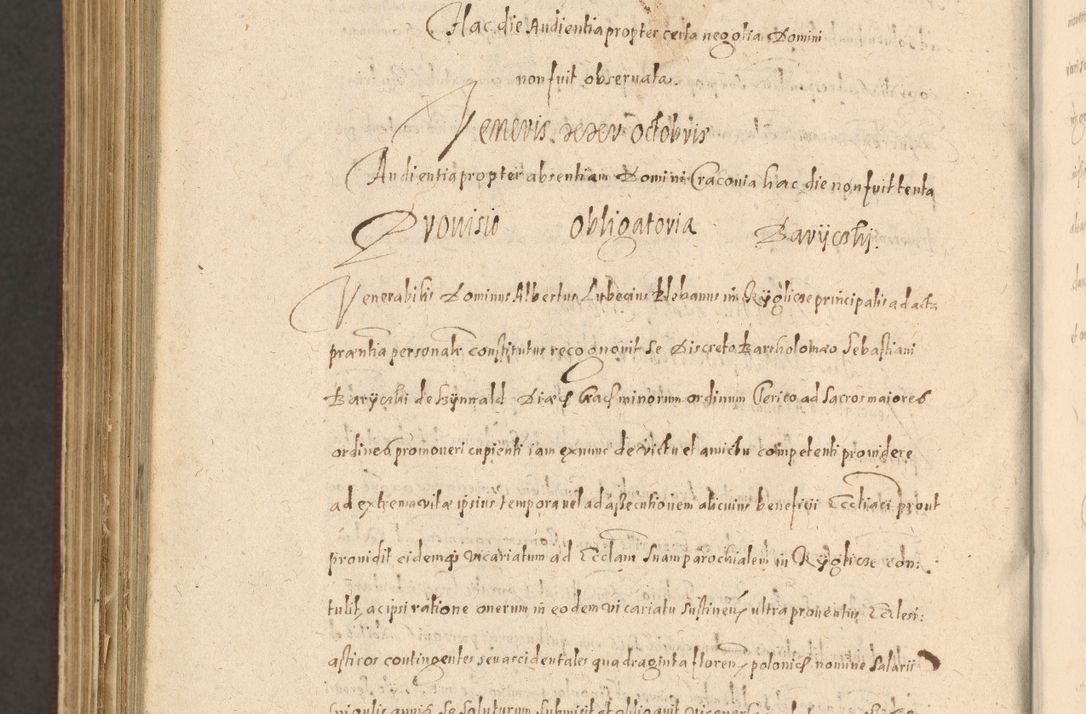 Hac die Audientia propter certa negotia Domini
non fuit observata.
Veneris xxv Octobris
Audientia propter absentiam Domini Cracovia hac die non fuit tenta
Provisio obligatoria Barÿcski.
Venerabilis Dominus Albertus Lubecius Plebanus in Rÿglicze principalis ad acta
præntia personalr constitutus recognovit se Discreto Bartholomæo Sebastiani
Barÿcski de Bÿnwald Diæc Crac minorum ordinum Clerico ad Sacros maiores
ordines promoveri cupienti iam exnunc de victu et amictu competenti providere
ad extrema vitæ ipsius tempora vel ad assecutionem alicuius beneficii Eccliaci prout
providit eidemq vicariatum ad Ecclam suam parochialem in Rÿglicze con:
tulit, ac ipsi ratione onerum in eodem vicariatu sustinen ultra proventus Eclesi:
asticos contingentes seu accidentales quadraginta floren polonic nomine Salarii
singulis annis se soluturum submisit et obligavit